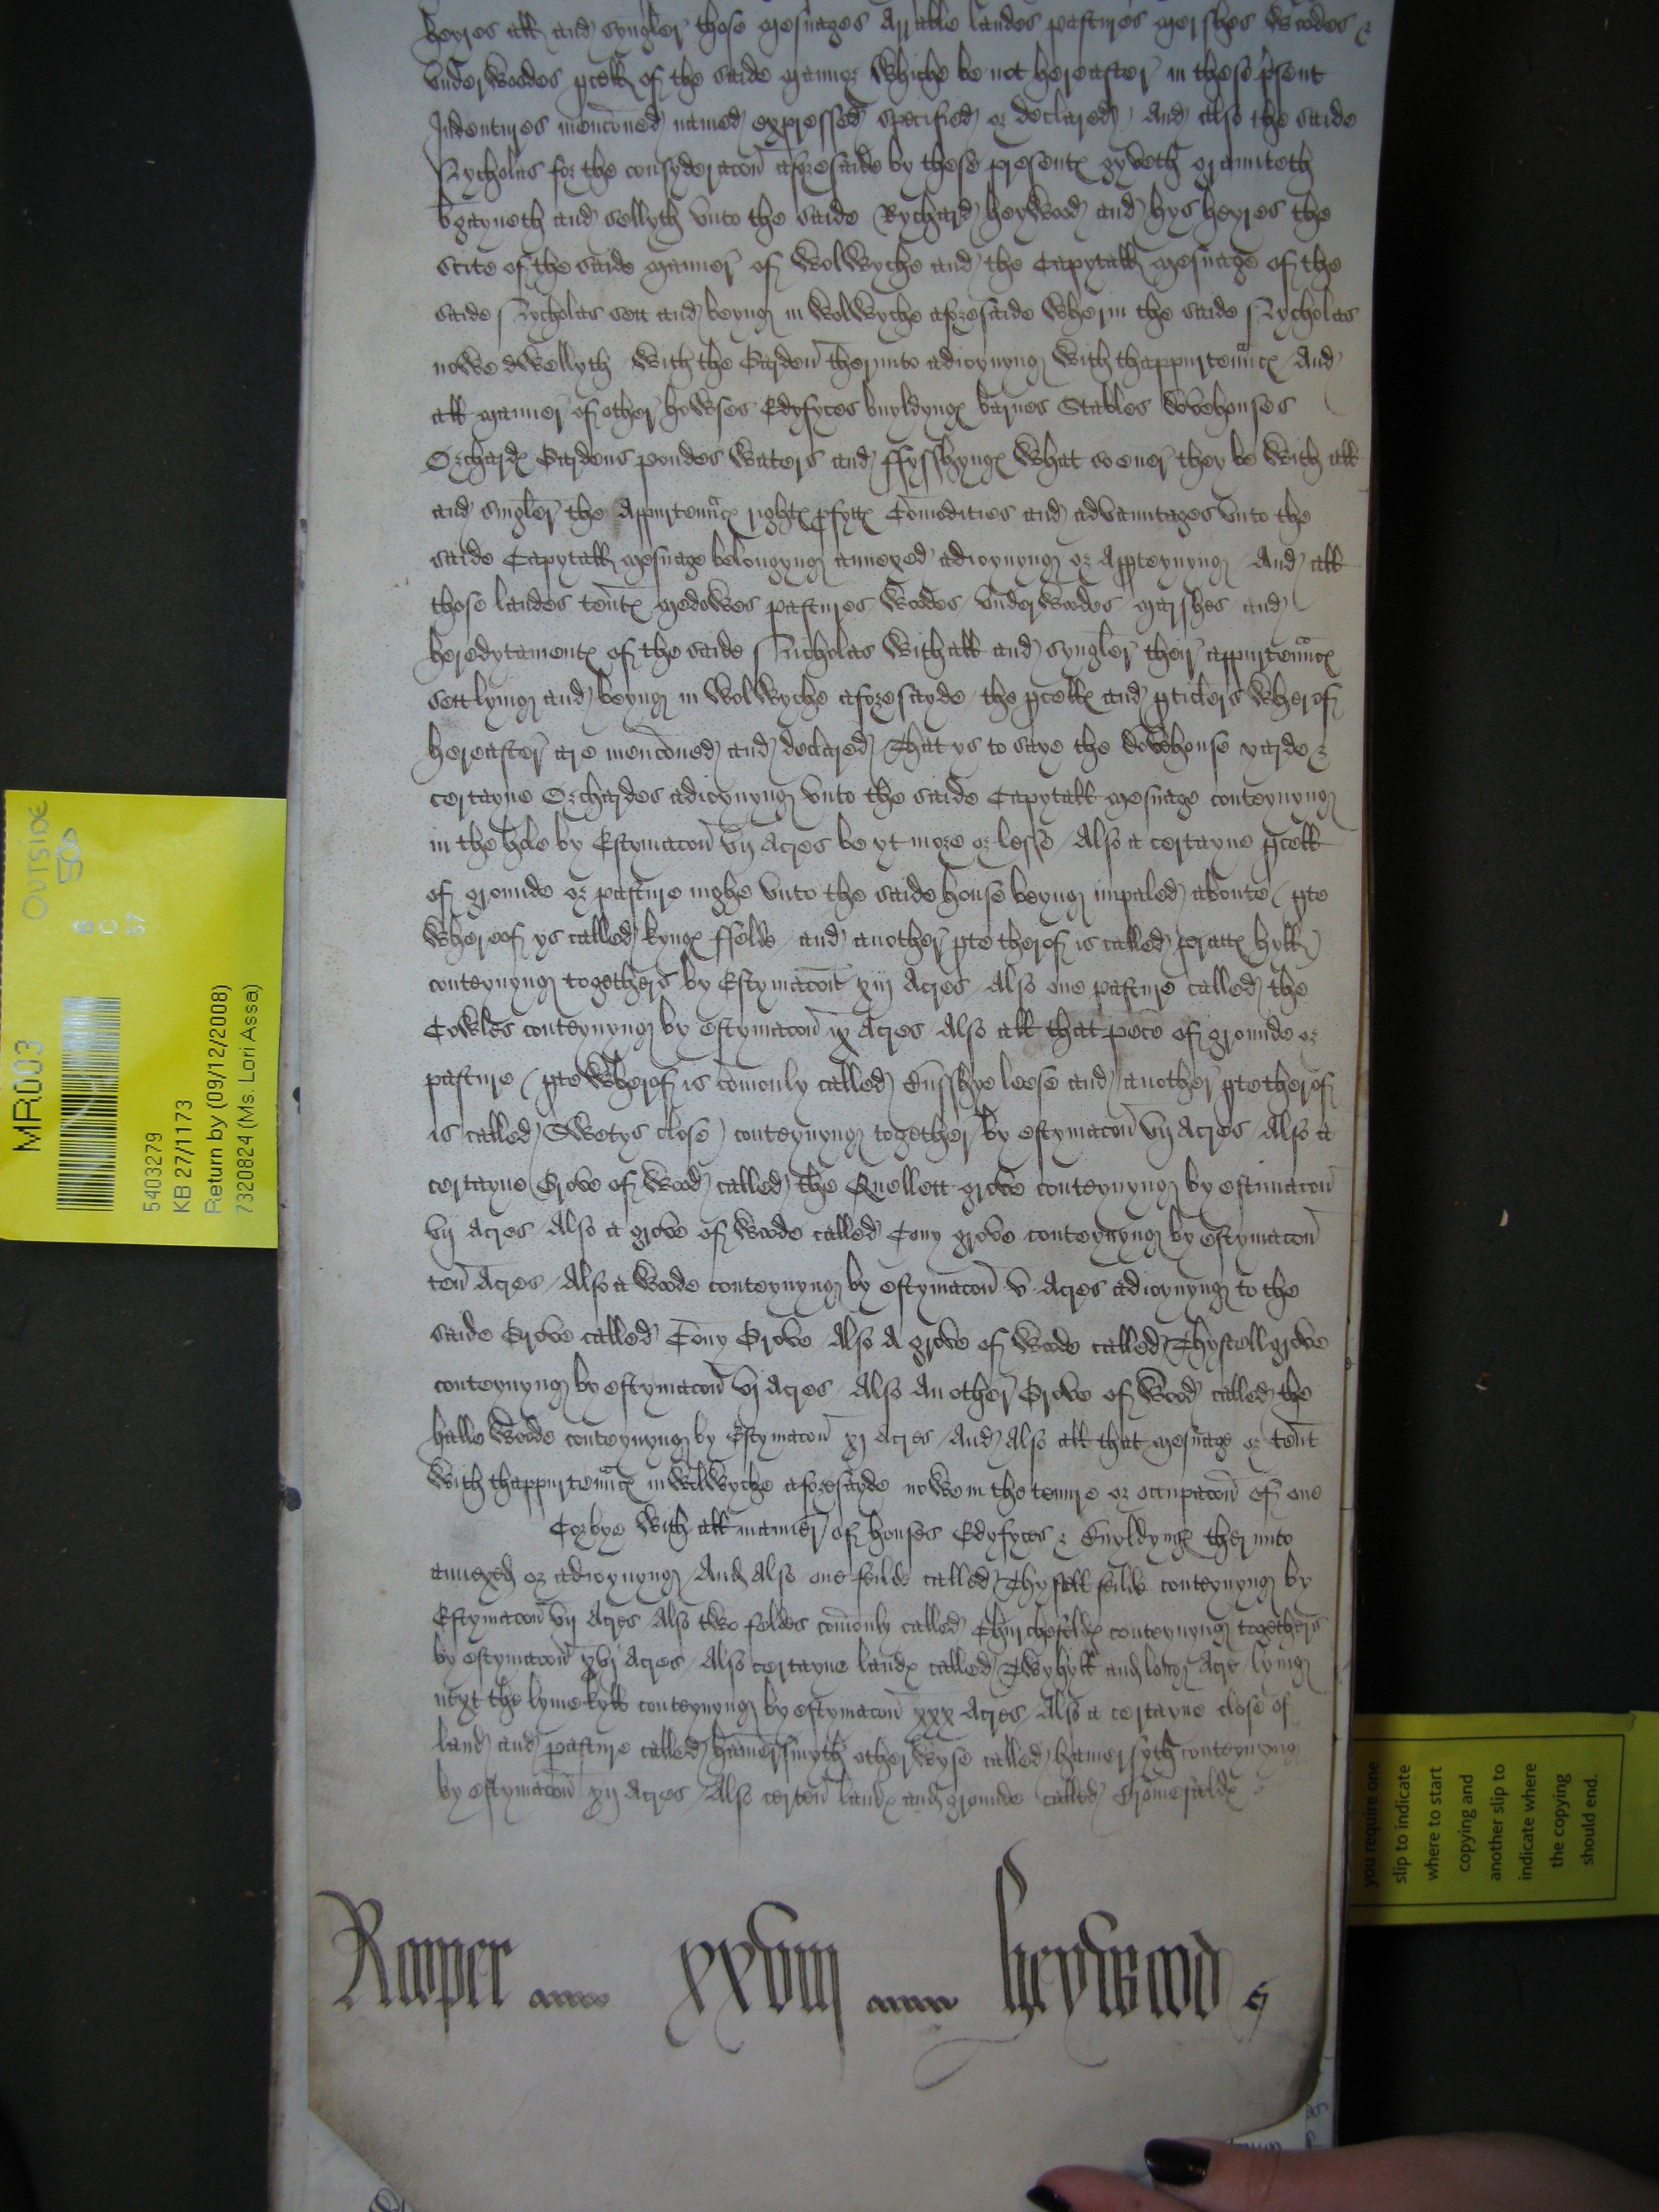 heyres all and syngler those mesuages Arrable landes pastures mershes woodes &
underwoodes pcell of the saide mannor Whiche be not hereafter in these psent
Indentures menconed named expressed specified or declared And also the saide
Nycholas for the consyderacon aforesaide by these presentes gyveth graunteth
bgayneth and sellyth unto the saide Rychard heywood and hys heyres the
scite of the saide manner of Wolwyche and the Capytall mesuage of the
saide Nycholas sett and beyng in Wolwyche aforesaide Wherin the saide Nycholas
nowe dwellyth With the Garden therunto adioynyng With thappurtennces And
all manner of other howses Edyfyces buyldynges barnes Stables dovehouses
Orchardes Gardens pondes Waters and ffysshynges What so ever they be With all
and singler the Appurtennces rightes pfyttes Comodities and advauntages unto the
saide Capytall mesuage belongyng annexed adioynyng or Appteynyng And all
those landes tentes medowes pastures Woodes underwoodes marshes and
heredytamentes of the saide Nicholas With all and syngler their appurtennces
sett lyinge and beyng in Wolwyche aforesayde the pcelles and pticlers Wherof
hereafter are menconed and declared That ys to saye the dovehouse yarde &
certayne Orchardes adioynyng unto the saide Capytall mesuage conteynyng
in the hole by Estymacon vij Acres be yt more or lesse Also a certayne pcell
of grounde or pasture nighe unto the saide house beyng impaled aboute pte
Whereof ys called kynges ffelde and another pte therof is called prattes hyll
conteynyng togethers by Estymacon xiij Acres Also one pasture called the
Cowles conteynyng by estymacon ix Acres Also all that pece of grounde or
pasture pte Wherof is comonly called Busshye leese and another pte therof
is called Swetys close conteynyng together by estymacon vij Acres Also a
certayne Grove of Wood called the Quellett grove conteynyng by estimacon
vij Acres Also a grove of Woode called Cony grove conteynyng by estymacon
ten Acres Also a Woode conteynyng by estymacon v Acres adioynyng to the
saide Grove called Cony Grove Also A grove of Wode called Thystell grove
conteynyng by estymacon vj Acres Also An other Grove of Wood called the
halle Woode conteynyng by Estymacon xj Acres And Also all that mesuage or tent
With thappurtennces in Wolwyche aforesayde nowe in the tenure or occupacon of one
Corbye With all manner of houses Edyfyces & Buyldynges therunto
annexed or adioynyng And Also one feilde called Thystell feilde conteynyng by
Estymacon vij Acres Also two feldes comonly called Churchefeldes conteynyng togethers
by estymacon xvj Acres Also certayne landes called Twyhyll and long Acre lying
next the lyme kyll conteynyng by estymacon xxx Acres Also a certayne close of
land and pasture called hamersmyth otherwyse called hamersyth conteynyng
by estymacon xij Acres Also certen landes and grounde called
Rooper xxviij heywood
MR003
OUTSIDE
5403279
KB 27/1173
Return by (09/12/2008)
7320824 (Ms. Lori Assa)
you require one
slip to indicate
where to start
copying and
another slip to
indicate where
the copying
should end.